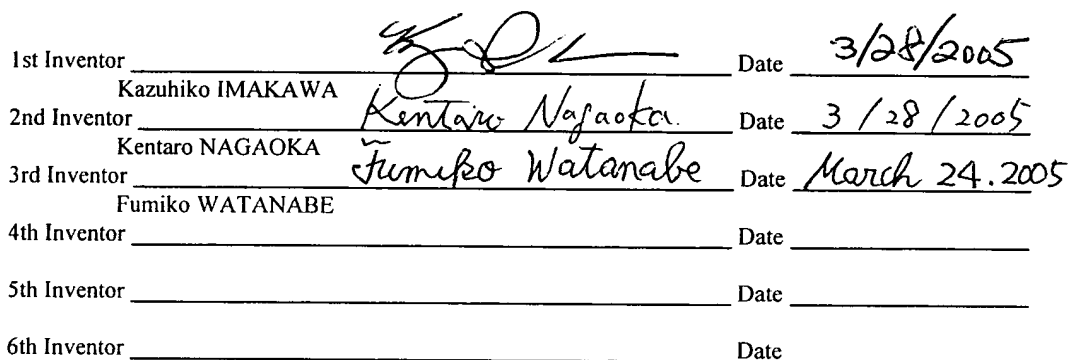 1st Inventor Date 3/28/2005
Kazuhiko IMAKAWA
2nd Inventor Kentaro Nagaoka. Date 3/28/2005
Kentaro NAGAOKA
3rd Inventor Fumiko Watanabe Date March 24.2005
Fumiko WATANABE
4th Inventor Date
5th Inventor Date
6th Inventor Date